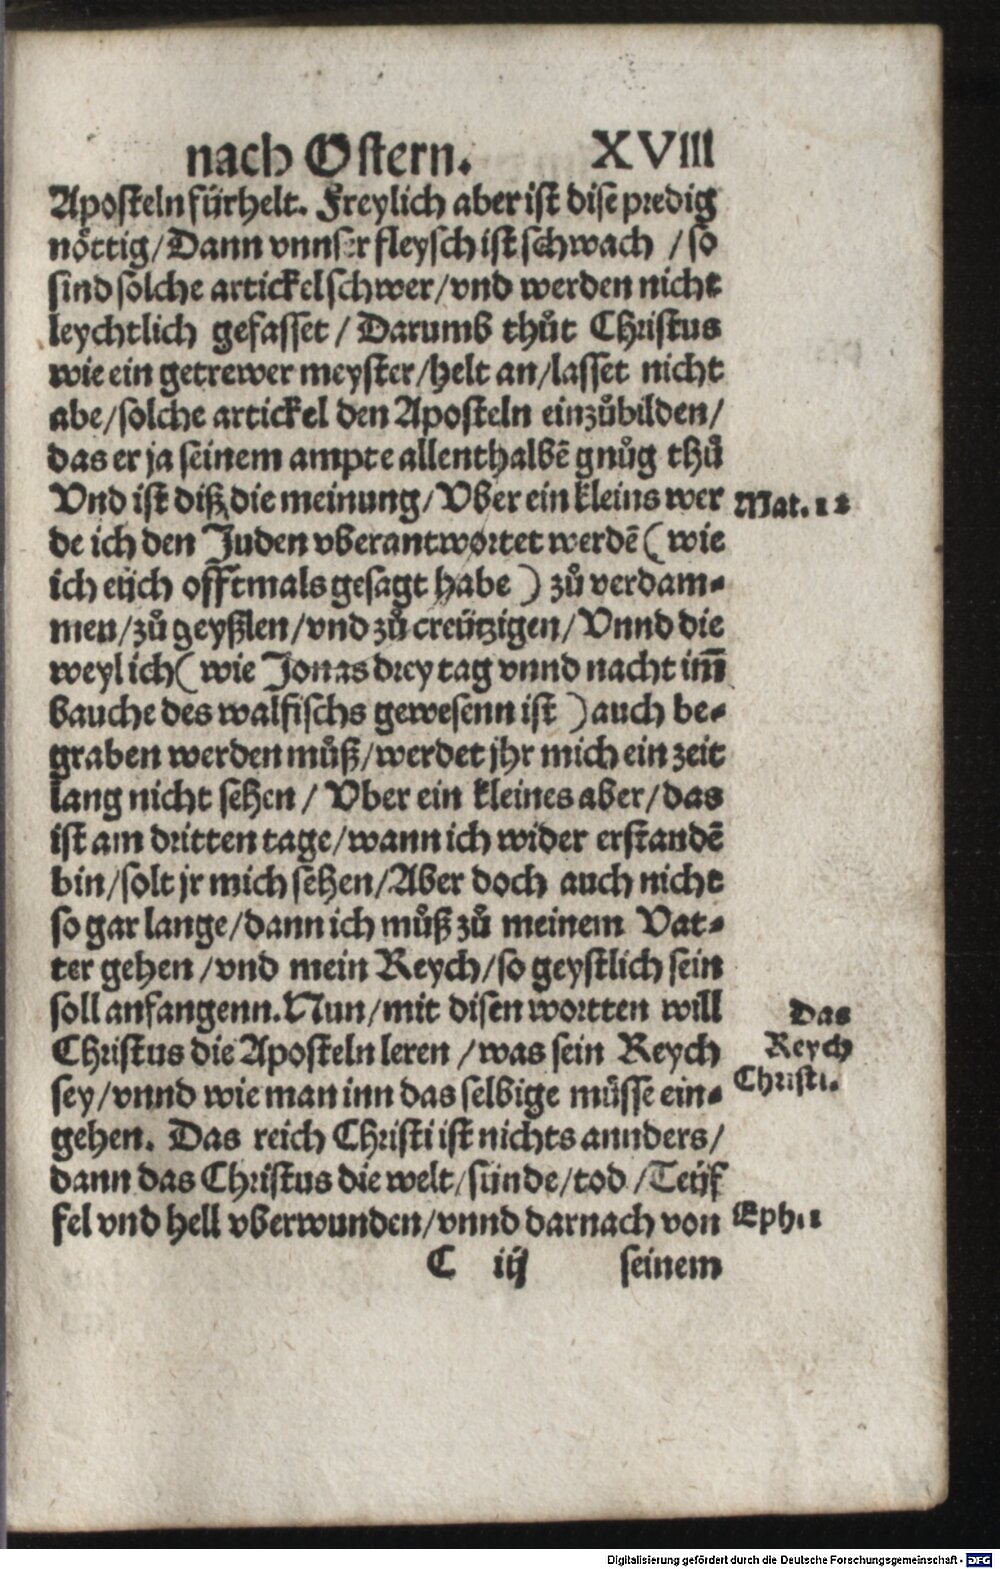 nach Ostern. XVIII
Aposteln fürhelt. Freylich aber ist dise predig
nöttig/Dann vnnser fleysch ist schwach /so
sind solche artickel schwer/vnd werden nicht
leychtlich gefasset/ Darumb thůt Christus
wie ein getrewer meyster/helt an/lasset nicht
abe/solche artickel den Aposteln einzůbilden/
das er ja seinem ampte allenthalbē gnůg thů
Vnd ist diß die meinung/Vber ein kleins wer
Mat.12
de ich den Juden vberantwortet werdē (wie
ich eüch offtmals gesagt habe) zů verdam-
men/zů geyßlen/vnd zů creützigen/Vnnd die
weyl ich (wie Jonas drey tag vnnd nacht im̄
bauche des walfischs gewesenn ist) auch be-
graben werden můß/werdet jhr mich ein zeit
lang nicht sehen/ Vber ein kleines aber/das
ist am dritten tage/wann ich wider erstandē
bin/solt jr mich sehen/Aber doch auch nicht
so gar lange/dann ich můß zů meinem Vat-
ter gehen/vnd mein Reych/so geystlich sein
soll anfangenn.Nun/mit disen wortten will
Das
Christus die Aposteln leren/was sein Reych
Reych
sey/vnnd wie man inn das selbige müsse ein-
Christi.
gehen. Das reich Christi ist nichts annders/
dann das Christus die welt/sünde/tod/Teüf
fel vnd hell vberwunden/vnnd darnach von
Eph.1
C iij seinem
Digitalisierung gefördert durch die Deutsche Forschungsgemeinschaft - DFG